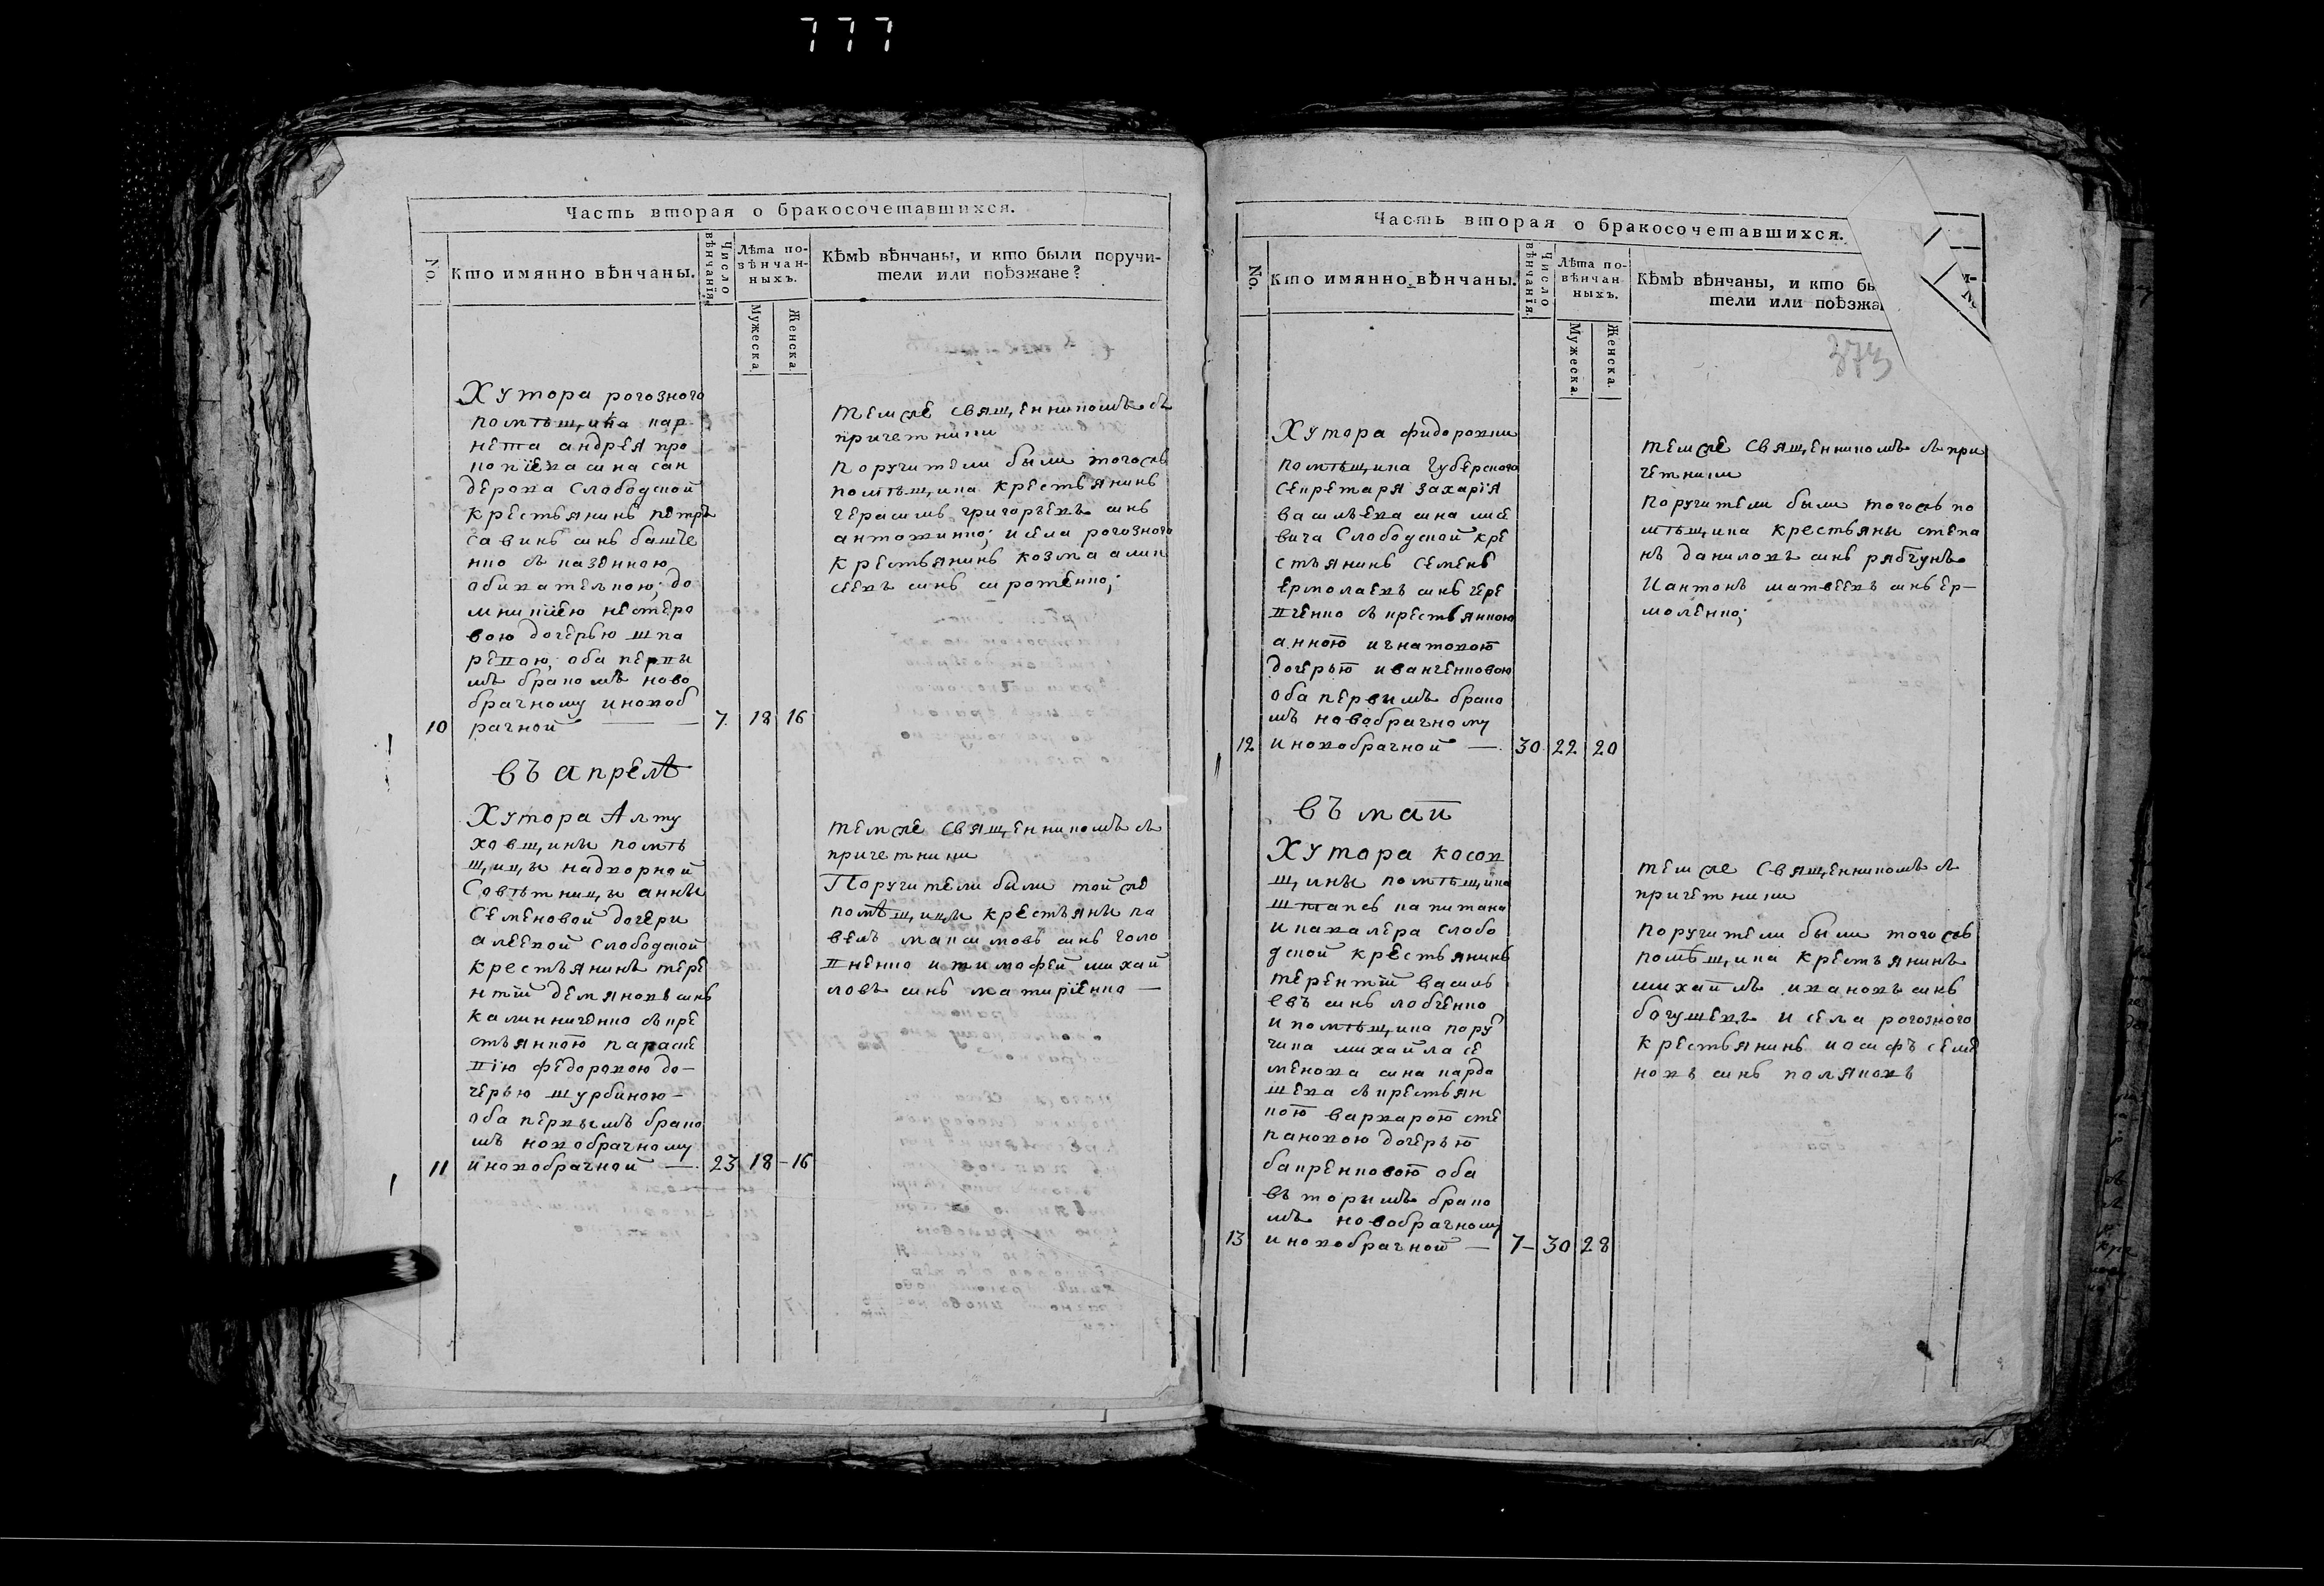 777
Часть вторая о бракосочетавшихся.
No.
Кто имянно вѣнчаны.
Число вѣнчанія.
Лѣта по-
вѣнчан-
ныхъ.
Мужеска.
Женска.
Кѣмъ вѣнчаны, и кто были поручи-
тели или поѣзжане?
Хутора рогозного
помѣщика кар
нета андрея про
копіева сина сан
дерова Слободской
крестьянинъ петръ
савинъ синъ
нко съ казенною
обивателкою, до
мникіею нестеро
вою дочерью шка
репою, оба первы
мъ бракомъ ново
брачному иновоб
10 рачной — 7. 18 16
темже священникомъ съ
причетники
Поручители были тогожъ
помѣщика крестьянинъ
герасимъ григорьевъ синъ
антоженко; исела рогозного
крестьянинъ козма алик
сеевъ синъ сиротенко;
въ апрелѣ
Хутора Алту
ховщины помѣ
щицы надворной
Совѣтницы анны
Семеновой дочери
алеевой Слободской
крестьянинъ тере
нтій демяновъ синъ
калинниченко съ кре
стьянкою параске
піею федоровою до-
черью шурбиною-
оба первымъ брако
мъ новобрачному
11 иновобрачной — 23 18 - 16
темже священникомъ съ
причетники
Поручители были той же
помѣщицы крестьяны па
велъ максимовъ синъ голо
пненко и тимофей михай
ловъ синъ матиріенко —
Часть вторая о бракосочетавшихся.
No.
Кто имянно вѣнчаны.
Число вѣнчанія.
Лѣта по-
вѣнчан-
ныхъ.
Мужеска.
Женска.
Кѣмъ вѣнчаны, и кто бы
тели или поѣзжа
373
Хутора фидоровки
помѣщика губерского
секретаря захарія
васильева сина лисе
вича Слободской кре
стьянинъ Семенъ
ермолаевъ синъ чере
пченко съ крестьянкою
анною игнатовою
дочерью иванченковою
оба первимъ брако
мъ новобрачному
12 иновобрачной — 30. 22 20
темже священникомъ съ при
четники
поручители были тогожъ по
мѣщика крестьяны степа
нъ даниловъ синъ рябчунъ
Иантонъ матвеевъ синъ ер-
моленко;
въ маи
Хутора косов
щины помѣщика
штапсъ капитана
и кавалера слобо
дской крестьянинъ
терентій василь
евъ синъ лобченко
и помѣщика пору
чика михайла се
менова сина карда
шева съ крестьян
кою варварою сте
пановою дочерью
бакренковою оба
въторимъ брако
мъ новобрачному
13 иновобрачной — 7 - 30 28
темже священникомъ съ
причетники
поручители были тогожъ
помѣщика крестьянинъ
михайлъ ивановъ синъ
богушевъ и села рогозного
крестьянинъ иосифъ семе
новъ синъ поляковъ